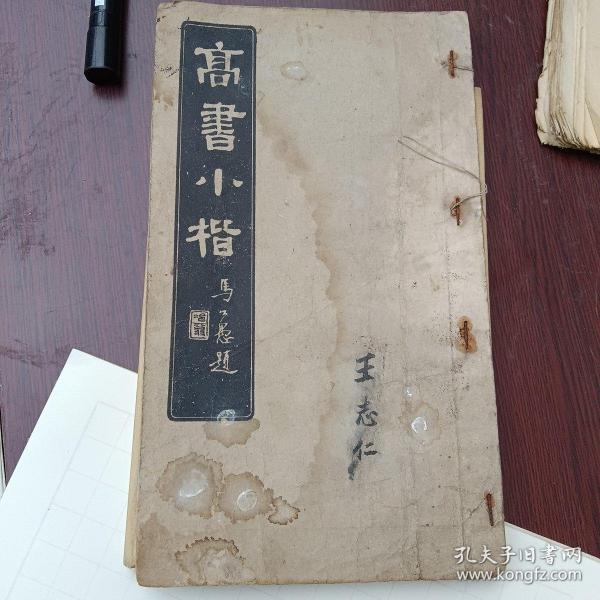 高書小楷
馬公愚題
王志仁
孔夫子旧书网
www.kongfz.com